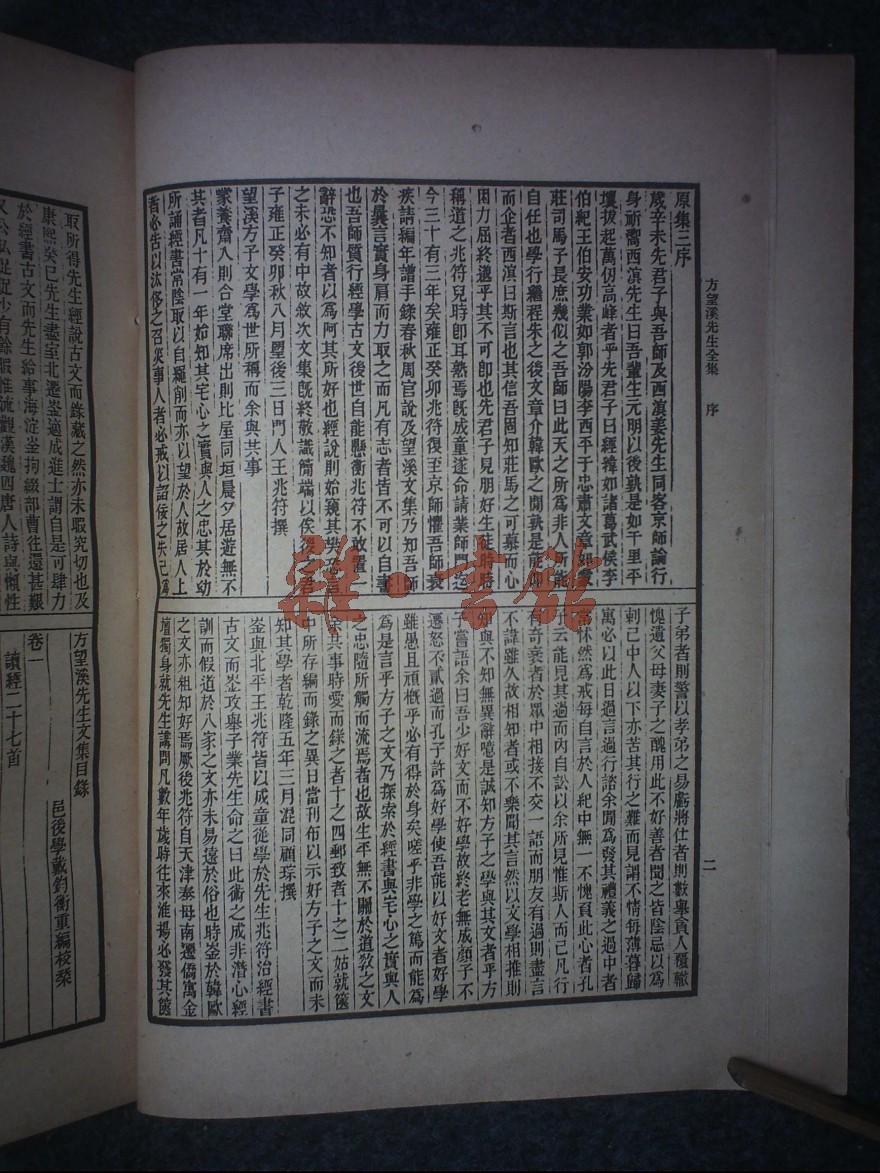 方望溪先生全集 序
二
原集三序
歲辛未先君子與吾師及西溟姜先生同客京師論行
身祈嚮西溟先生曰吾輩生元明以後孰是如千里平
壤拔起萬仞高峰者乎先君子曰經緯如諸葛武侯李
伯紀王伯安功業如郭汾陽李西平于忠肅文章如蒙
莊司馬子長庶幾似之吾師曰此天之所爲非人所能
自任也學行繼程朱之後文章介韓歐之間孰是能仰
而企者西溟曰斯言也其信吾固知莊馬之可慕而心
困力屈終邈乎其不可卽也先君子見朋好生徒時時
稱道之兆符兒時卽耳熟焉旣成童遂命請業師門迄
今三十有三年矣雍正癸卯兆符復至京師懼吾師衰
疾請編年譜手錄春秋周官說及望溪文集乃知吾師
於曩言實身肩而力取之而凡有志者皆不可以自畫
也吾師質行經學古文後世自能懸衡兆符不敢置一
辭恐不知者以爲阿其所好也經說則始窺其樊恐言
之未必有中故敘次文集旣終敬識簡端以俟後之君
子雍正癸卯秋八月望後三日門人王兆符撰
望溪方子文學爲世所稱而余與共事
蒙養齋入則合堂聯席出則比屋同垣晨夕居遊無不
其者凡十有一年始知其宅心之實與人之忠其於幼
所誦經書常陰取以自繩削而亦以望於人故居人上
者必告以汰侈之召災事人者必戒以諂佞之失己爲
子弟者則警以孝弟之易虧將仕者則數舉貪人覆轍
愧遺父母妻子之醜用此不好善者聞之皆陰忌以爲
刺己中人以下亦苦其行之難而見謂不情每薄暮歸
寓必以此日過言過行諮余閒爲發其禮義之過中者
常怵然爲戒每自言於人紀中無一不愧負此心者孔
子云能見其過而內自訟以余所見惟斯人而已凡行
有奇衺者於眾中相接不交一語而朋友有過則盡言
不諱雖久故相知者或不樂聞其言然以文學相推則
知與不知無異辭噫是誠知方子之學與其文者乎方
子嘗語余曰吾少好文而不好學故終老無成顏子不
遷怒不貳過而孔子許爲好學使吾能以好文者好學
雖愚且頑概乎必有得於身矣嗟乎非學之篤而能爲
爲是言乎方子之文乃探索於經書與宅心之實與人
之忠隨所觸而流焉者也故生平無不關於道敎之文
余共事時愛而錄之者十之四郵致者十之二姑就篋
中所存編而錄之異日當刊布以示好方子之文而未
知其學者乾隆五年三月混同顧琮撰
崟與北平王兆符皆以成童從學於先生兆符治經書
古文而崟攻舉子業先生命之曰此術之成非潛心經
訓而假道於八家之文亦未易遠於俗也時崟於韓歐
之文亦粗知好焉厥後兆符自天津奉母南遷僑寓金
壇獨身就先生講問凡數年歲時往來淮揚必發其篋
取所得先生經說古文而錄藏之然亦未暇究切也及
康熙癸巳先生盡室北遷崟適成進士謂自是可肆力
於經書古文而先生給事海淀崟拘綴部曹往還甚艱
又公私促促少有餘暇惟流觀漢魏四唐人詩與懶性
方望溪先生文集目錄
邑後學戴鈞衡重編校槧
卷一
讀經二十七首
雜·書館